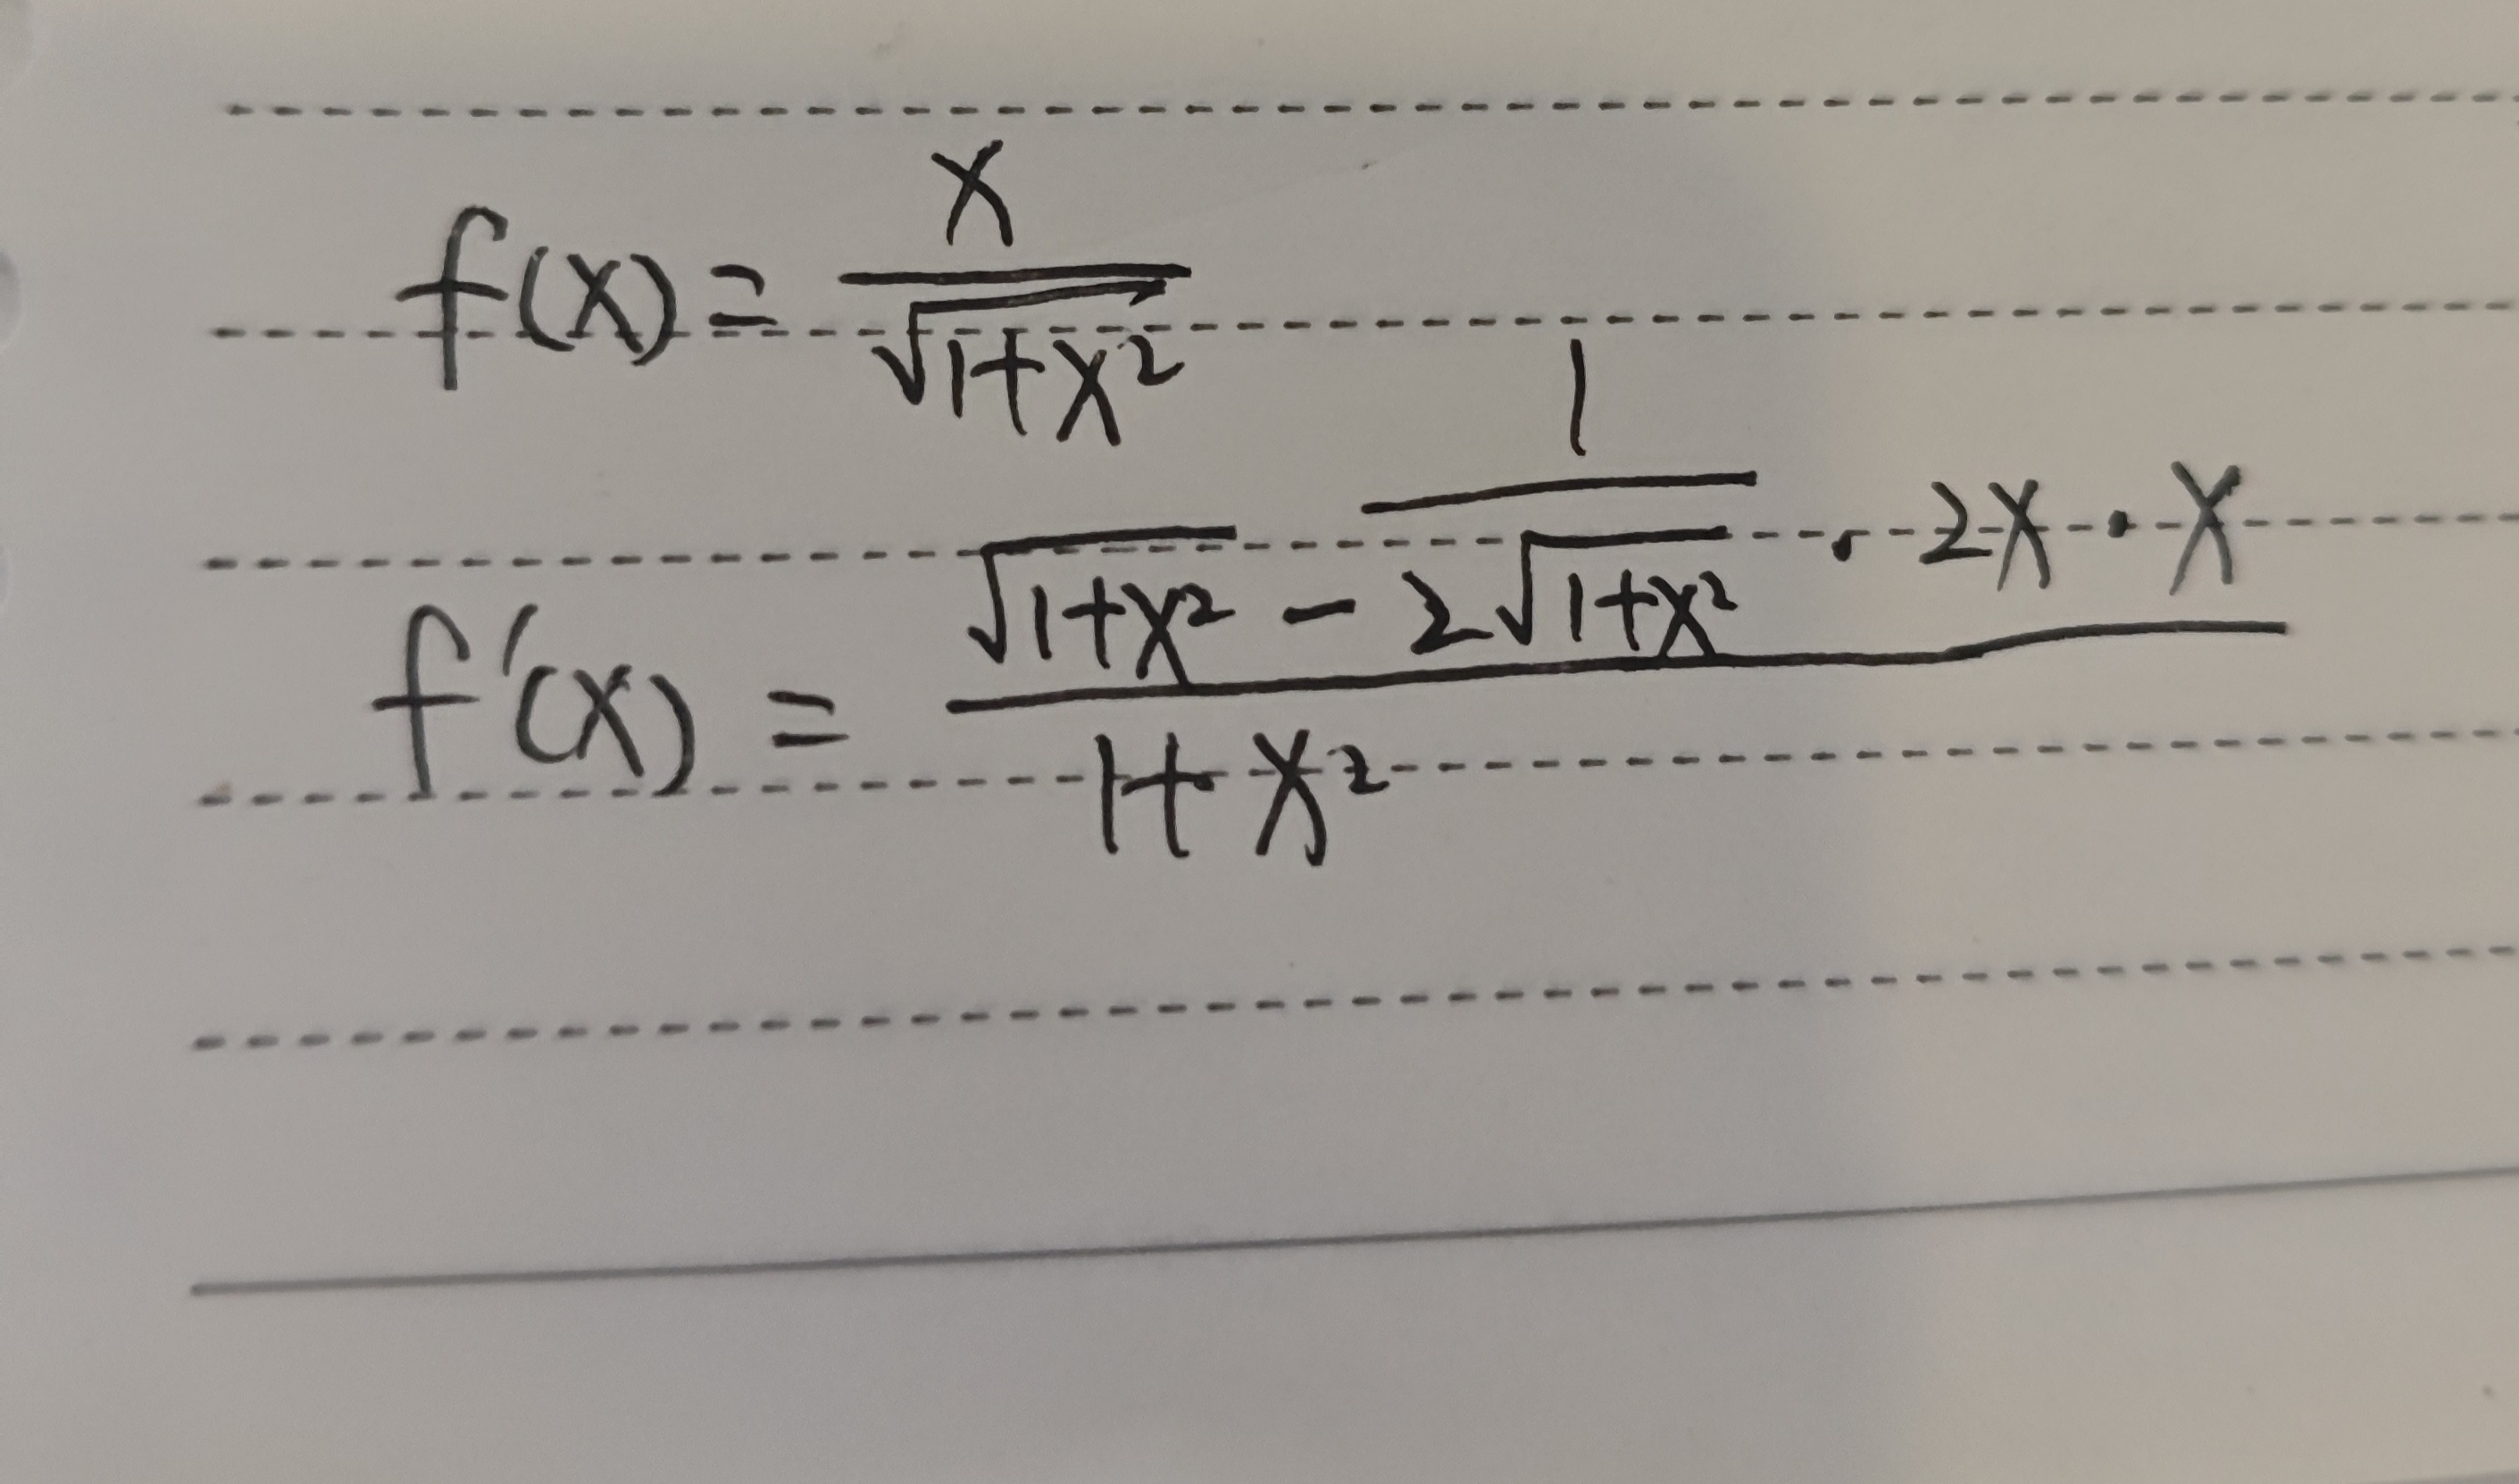 f(x) = x / √(1+x²)
f'(x) = (√(1+x²) - 1 / (2√(1+x²)) · 2x · x) / (1+x²)